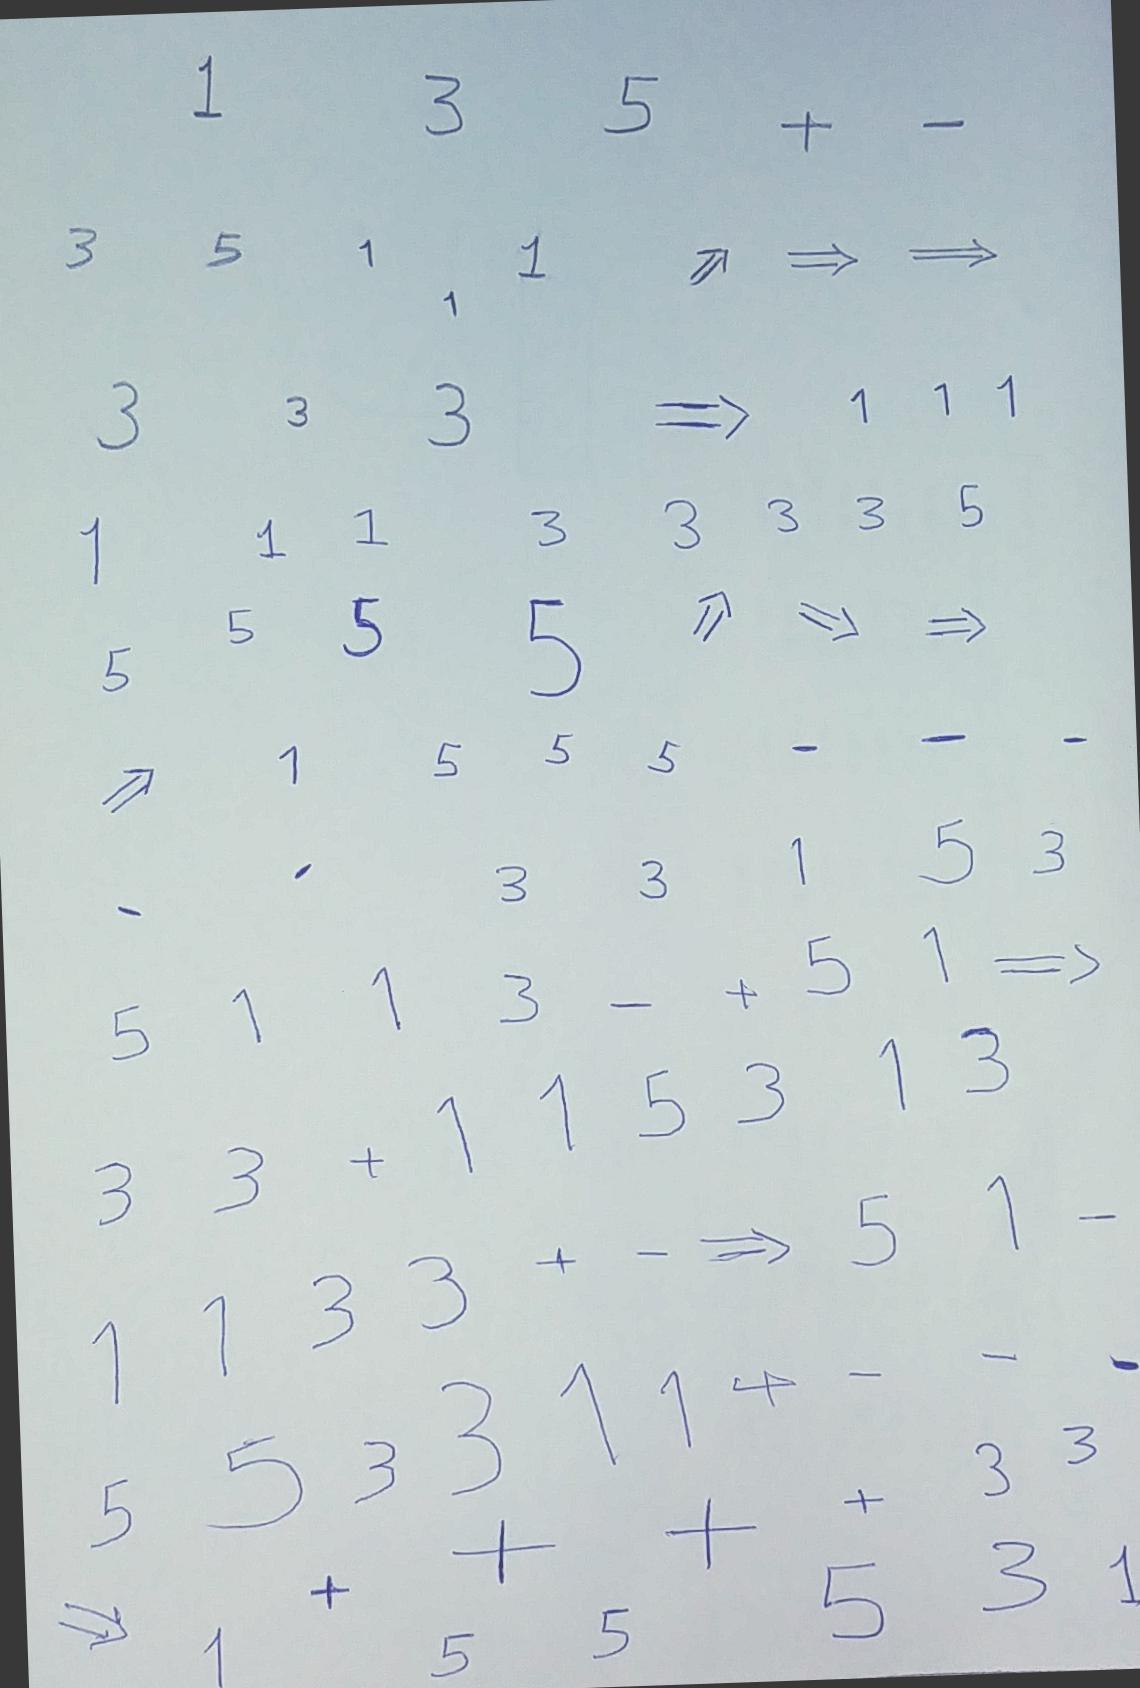 1 3 5 + -
3 5 1 1 1 ⇗ ⇒ ⇒
3 3 3 ⇒ 1 1 1
1 1 1 3 3 3 3 5
5 5 5 5 ⇗ ⇘ ⇒
⇗ 1 5 5 5 - - -
- - 3 3 1 5 3
5 1 1 3 - + 5 1 ⇒
3 3 + 1 1 5 3 1 3
1 1 3 3 + - ⇒ 5 1 -
5 5 3 3 1 1 + - - -
+ + + + 3 3
⇘ 1 5 5 5 3 1